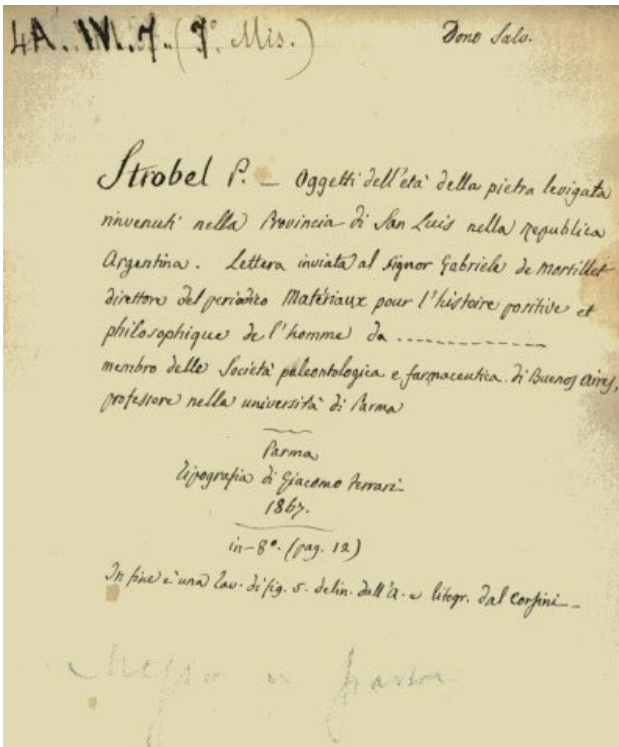 4A. IV. 7. (7° Mis.)
Dono Salv.
Strobel P. — Oggetti dell'età della pietra levigata
rinvenuti nella Provincia di San Luis nella Republica
Argentina. Lettera inviata al Signor Gabriele de Mortillet
direttore del periodico Matériaux pour l'histoire positive et
philosophique de l'homme da ..............
membro delle Società paleontologica e farmaceutica di Buenos Aires,
professore nella università di Parma
Parma
tipografia di Giacomo Ferrari
1867.
in-8°. (pag. 12)
In fine è una tav. di fig. 5. delin. dall'A. e litogr. dal Corsini